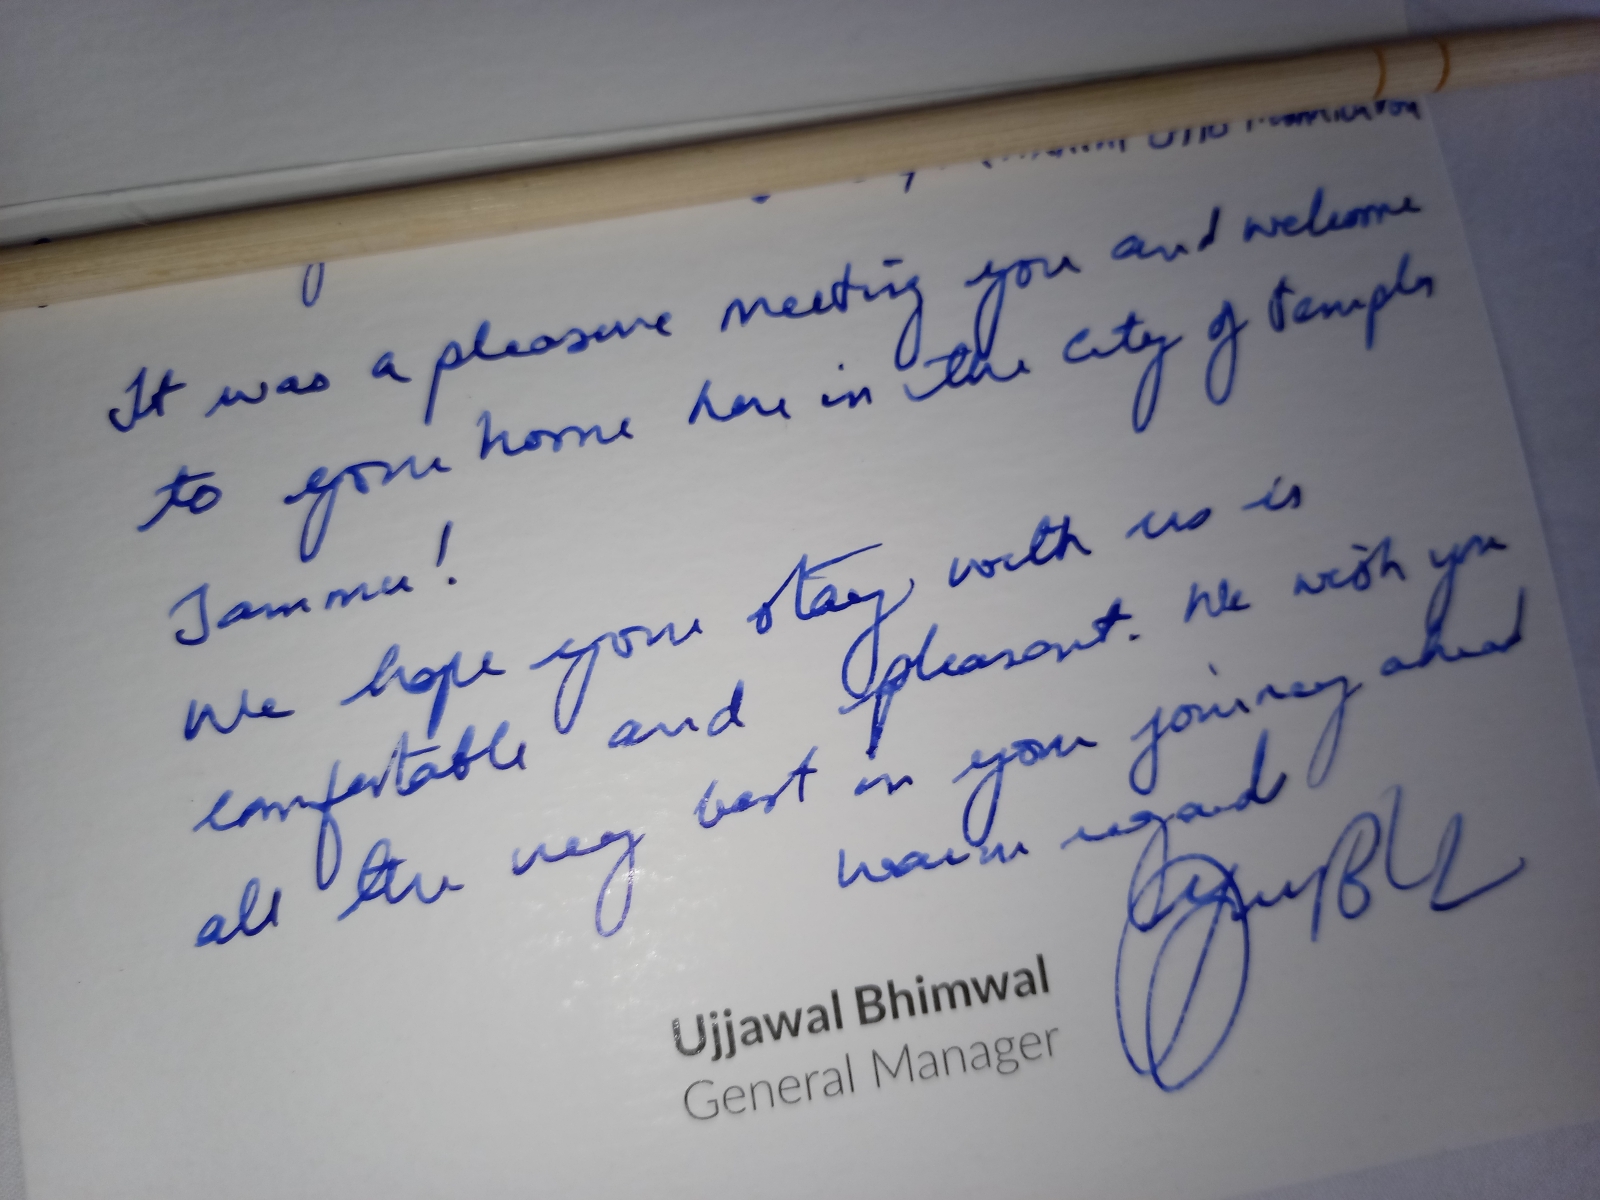 It was a pleasure meeting you and welcome
to your home here in the city of temples
Jammu!
We hope your stay with us is
comfortable and pleasant. We wish you
all the very best in your journey ahead
warm regard
Ujjawal Bhimwal
General Manager